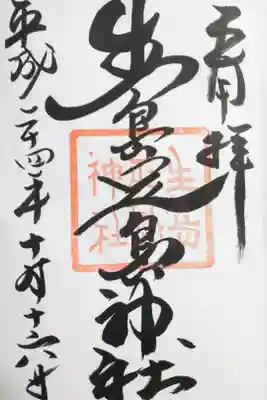 奉拝
生島足島神社
生島
足島
神社
平成二十四年十月十六日